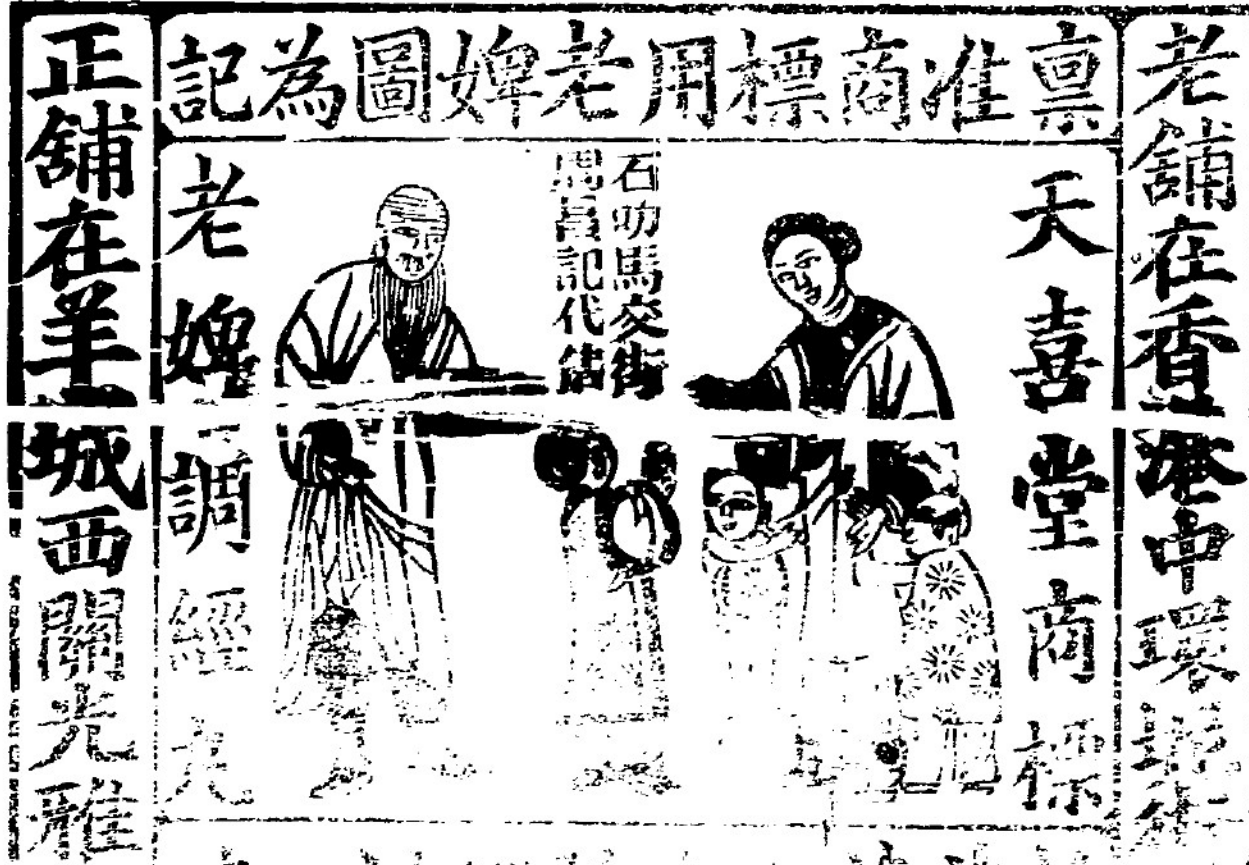 稟准商標用老婢圖為記
老舖在香港中環
天喜堂商標
石叻馬交街
記代售
老婢調經丸
正舖在羊城西關光雅